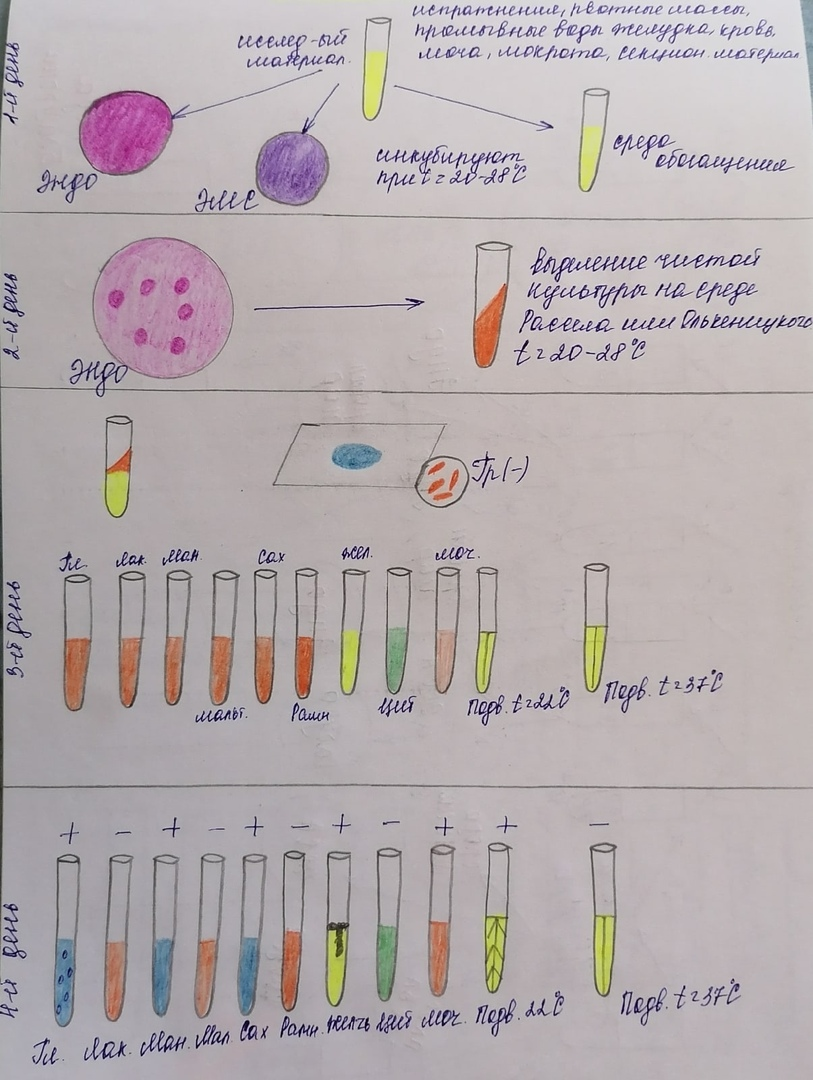 1-й день
исслед-ый
материал.
испражнения, рвотные массы,
промывные воды желудка, кровь,
моча, мокрота, секцион. материал
Эндо
ЭМС
инкубируют
при t = 20-28°C
среда
обогащения
2-й день
Эндо
выделение чистой
культуры на среде
Рассела или Олькеницкого
t = 20-28°C
3-й день
Гр (-)
Гл. Лак. Ман. Сах жел. моч.
мальт. Рамн Цит Подв. t = 22°C Подв. t = 37°C
4-й день
+ - + - + - + - + + -
Гл. Лак. Ман. Мал. Сах Рамн. Желчь Цит моч. Подв. 22°C Подв. t = 37°C